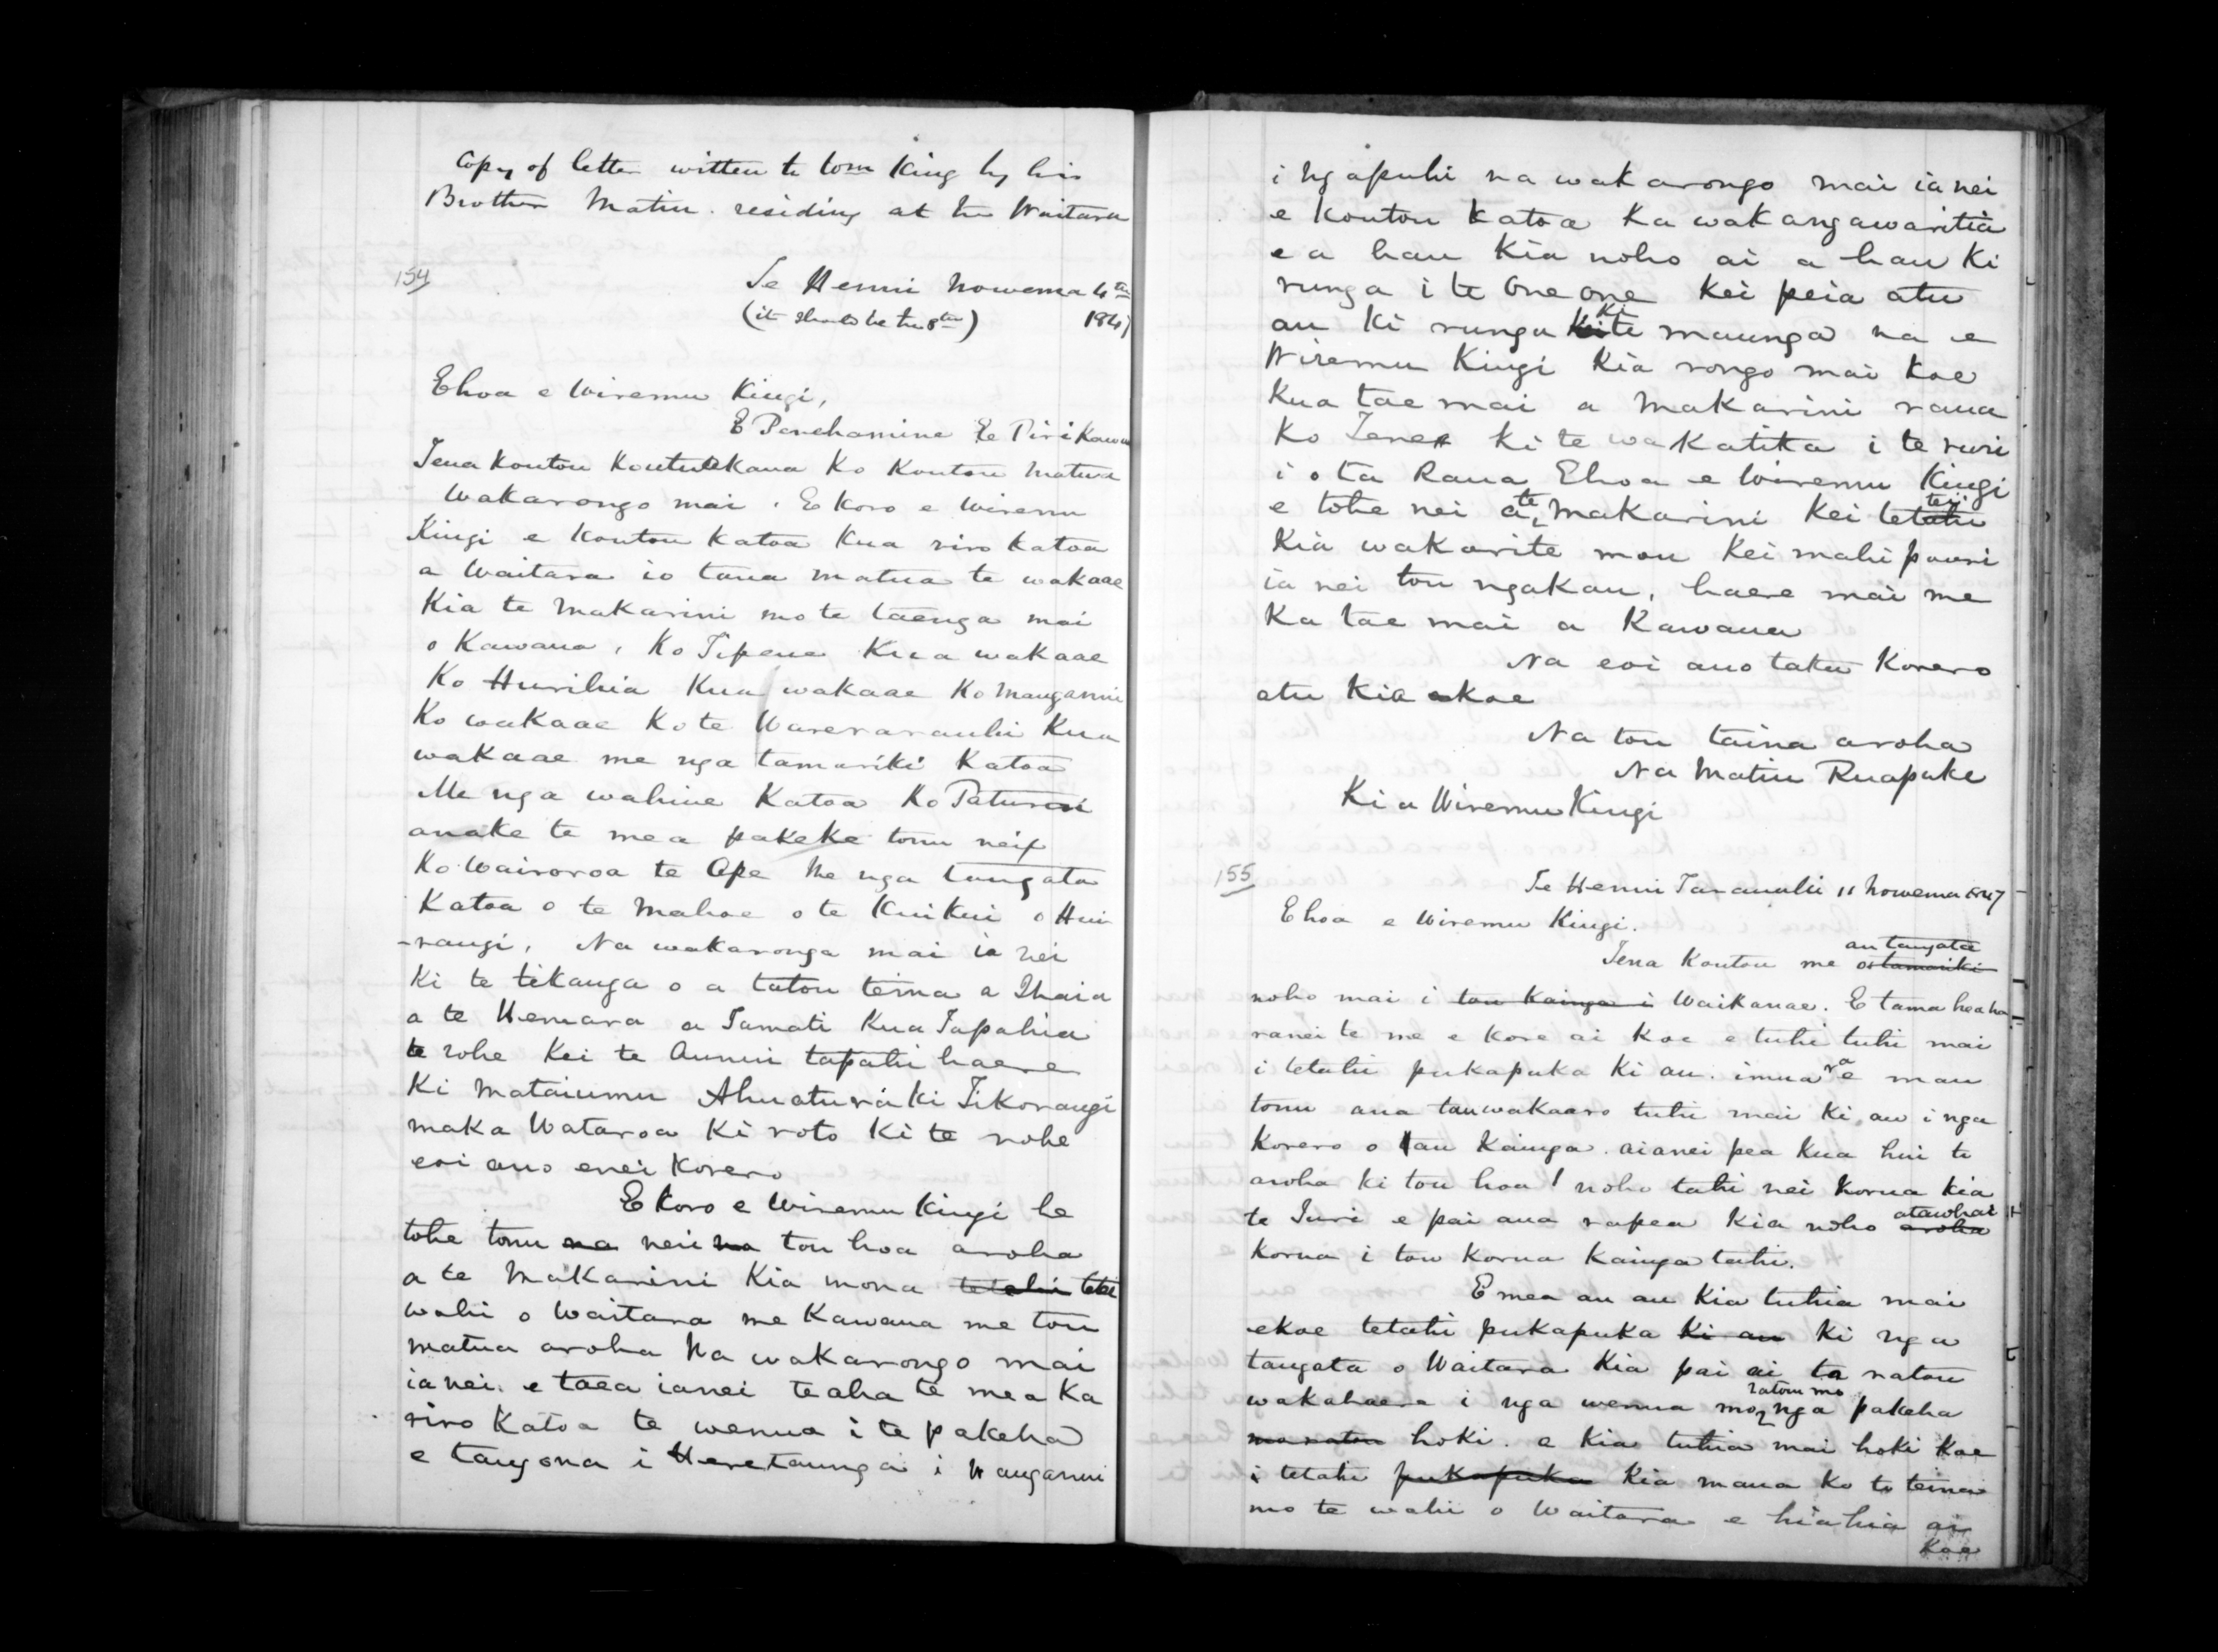 Copy of letter written to Wm King by his
Brother Matiu. residing at the Waitara
154
Te Henui Nowema 4th
(it should be the 8th) 1847
Ehoa e Wiremu Kingi,
E Penehamine Te Tiri Kawau
Tena koutou koutu tekana ko koutou matua
wakarongo mai. E koro e Wiremu
Kingi e koutou katoa kua riro katoa
a Waitara io taua matua te wakaae
Kia te Makarini mo te taenga mai
o Kawana, Ko Tipene Kua wakaae
Ko Hurihia Kua wakaae Ko Manganui
Ko wakaae Ko te Warerarauhi Kua
wakaae me nga tamariki Katoa
Me nga wahine Katoa Ko Paturoi
anake te mea pakeke tonu nei
Ko Wairoroa te Ape me nga tangata
Katoa o te Mahoe o te Kuikui o Hui
-rangi. Na wakaronga mai ia nei
Ki te tikanga o a tatou teina a Ihaia
a te Hemara a Tamati Kua Tapahia
te rohe Kei te Aunui tapahi haere
Ki Mataiumu Ahuatura ki Tikorangi
maka Wataroa Ki roto Ki te rohe
eoi ano enei Korero
E Koro e Wiremu Kingi he
tohe tonu na nei na tou hoa aroha
a te Makarini Kia mona tetahi tetei
wahi o Waitara me Kawana me tou
matua aroha Na wakarongo mai
ia nei. e taea ianei te aha te mea Ka
riro Katoa te wenua i te pakeha
e tangona i Heretaunga i Wanganui
i Ngapuhi na wakarongo mai ia nei
e koutou katoa Ka wakangawaritia
e a hau Kia noho ai a hau Ki
runga i te One one Kei peia atu
au Ki runga Kei Ki te maunga na e
Wiremu Kingi Kia rongo mai koe
Kua tae mai a Makarini raua
Ko Tene ki te wakatika i te ruri
i o ta Raua Ehoa e Wiremu Kingi
e tohe nei a te Makarini Kei tetahi tei
Kia wakarite mou Kei mahi pouri
ia nei tou ngakau, haere mai me
Ka tae mai a Kawana
Na eoi ano taku Korero
atu Kia koe
Na tou taina aroha
Na Matiu Ruapuke
Kia Wiremu Kingi
155
Te Henui Taranaki 11 Nowema 1847
Ehoa e Wiremu Kingi.
Tena Koutou me o tamariki au tangata
noho mai i tou Kainga i Waikanae. E tama heaha
ranei te me e kore ai koe e tuhi tuhi mai
i tetahi pukapuka Ki au. imua ra e mau
tonu ana tau wakaaro tuhi mai Ki au i nga
Korero o tau Kainga. aianei pea Kua hui te
aroha Ki tou hoa! noho tahi nei Korua Kia
te Turi e pai ana rapea Kia noho aroha atawhai
Korua i tou Korua Kainga tahi.
E mea an au Kia tuhia mai
ekoe tetahi pukapuka Ki au Ki nga
tangata o Waitara Kia pai ai ta ratou
wakahaere i nga wenua mo ratou mo nga pakeha
mo ratou hoki. e Kia tuhia mai hoki Koe
i tetahi pukapuka Kia maua Ko to teina
mo te wahi o Waitara e hiahia ai
Koe